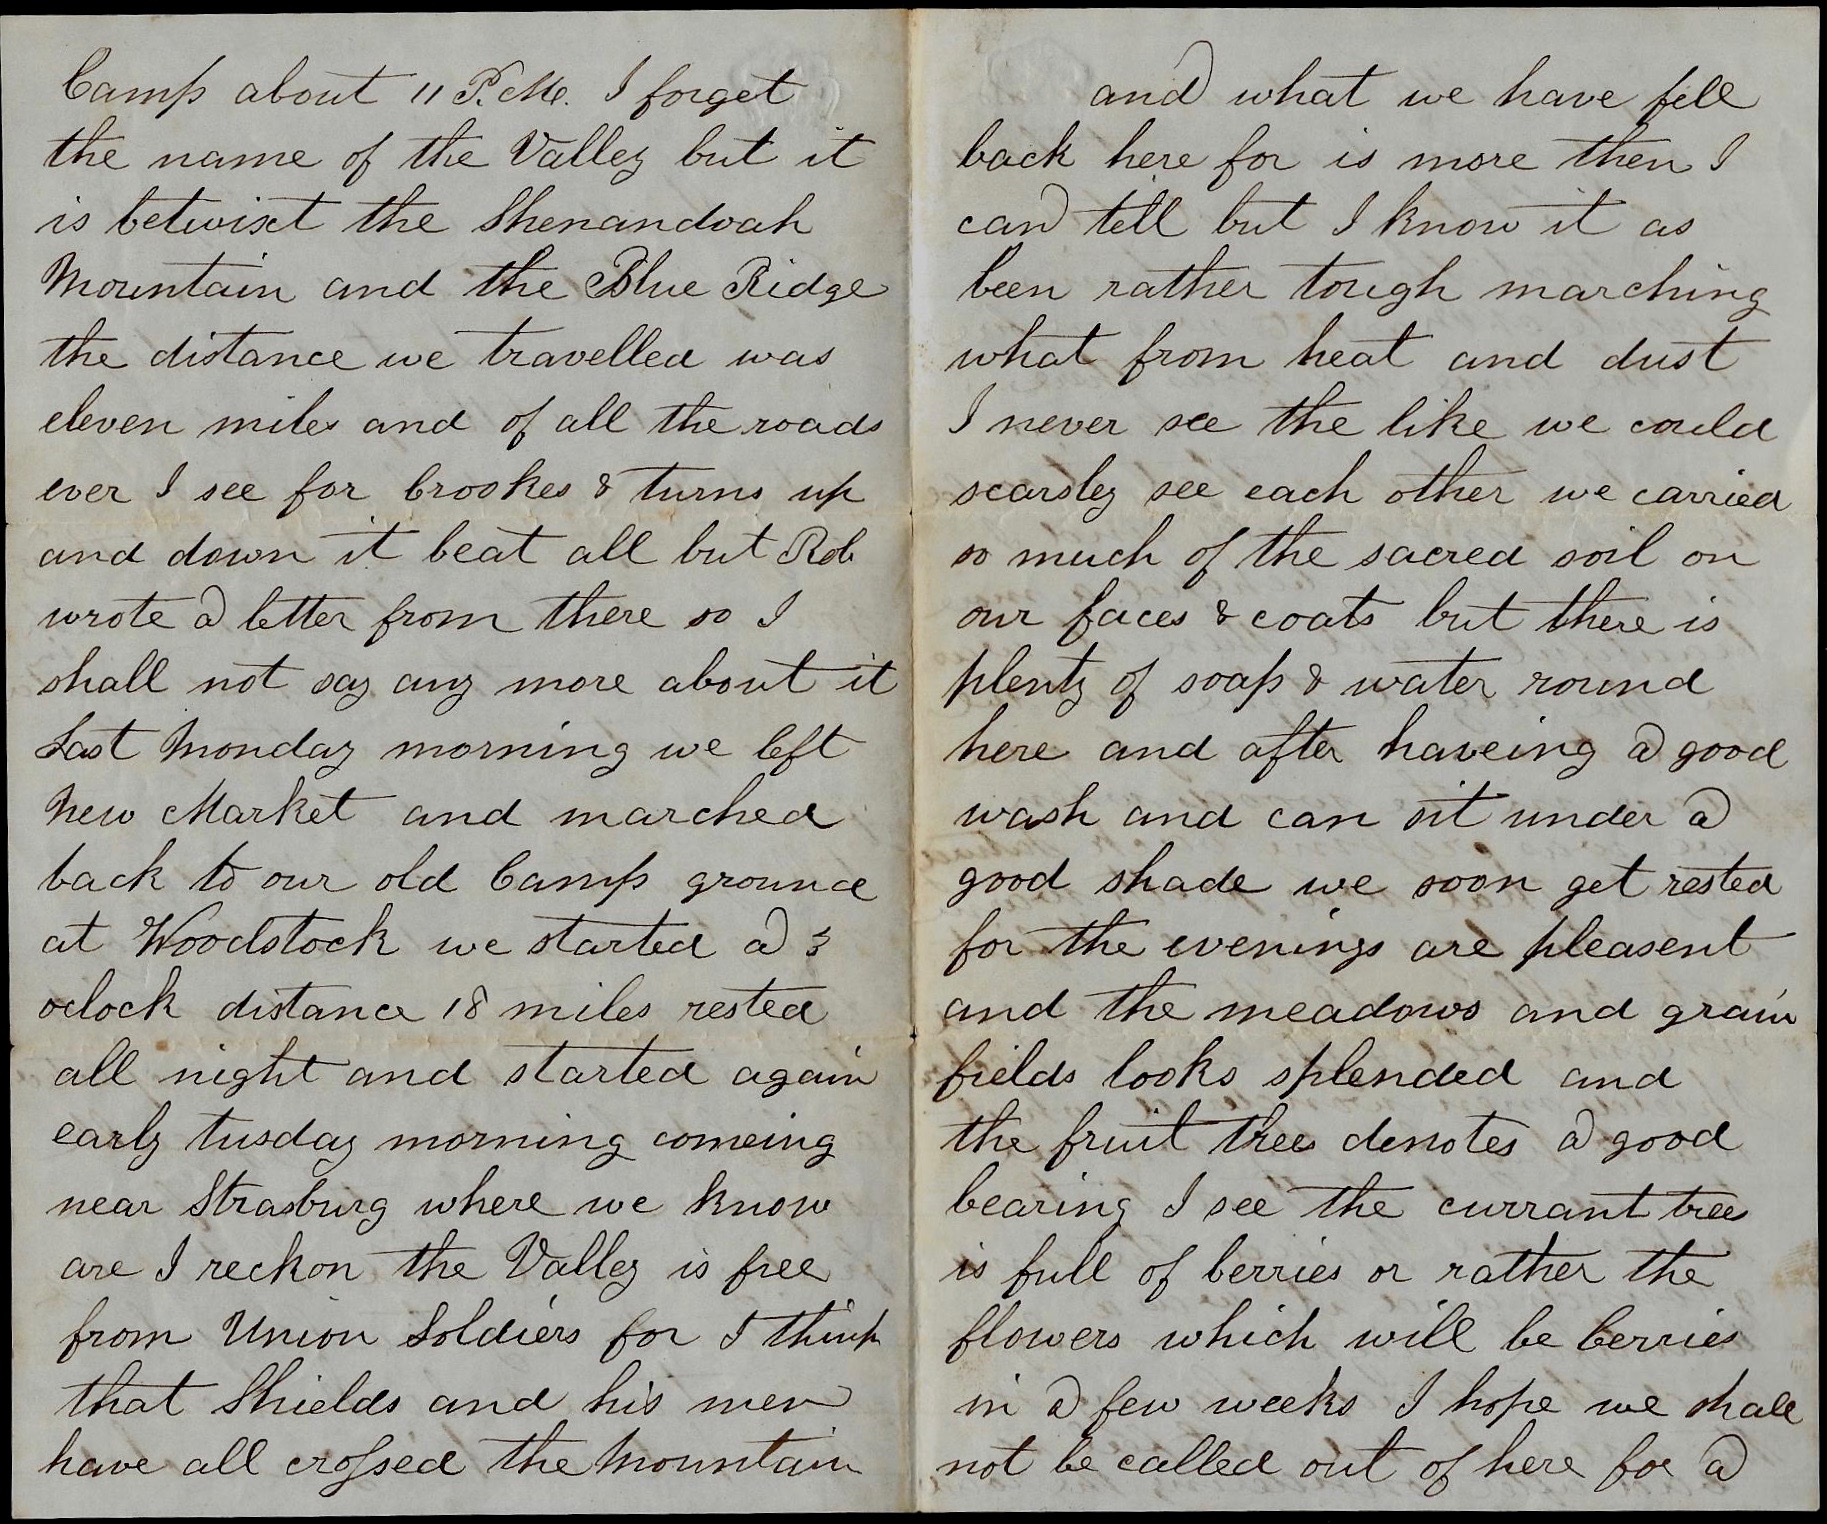 Camp about 11 P.M. I forget
the name of the Valley but it
is betwixt the Shenandoah
Mountain and the Blue Ridge
the distance we travelled was
eleven miles and of all the roads
ever I see for brookes & turns up
and down it beat all but Rob
wrote a letter from there so I
shall not say any more about it
Last Monday morning we left
New Market and marched
back to our old Camp ground
at Woodstock we started a 3
oclock distance 18 miles rested
all night and started again
early tusday morning comeing
near Strasburg where we know
are I reckon the Valley is free
from Union Soldiers for I think
that Shields and his men
have all crossed the Mountain
and what we have fell
back here for is more then I
can tell but I know it as
been rather tough marching
what from heat and dust
I never see the like we could
scarsley see each other we carried
so much of the sacred soil on
our faces & coats but there is
plenty of soap & water round
here and after haveing a good
wash and can sit under a
good shade we soon get rested
for the evenings are pleasent
and the meadows and grain
fields looks splended and
the fruit trees denotes a good
bearing I see the currant trees
is full of berries or rather the
flowers which will be berries
in a few weeks I hope we shall
not be called out of here for a